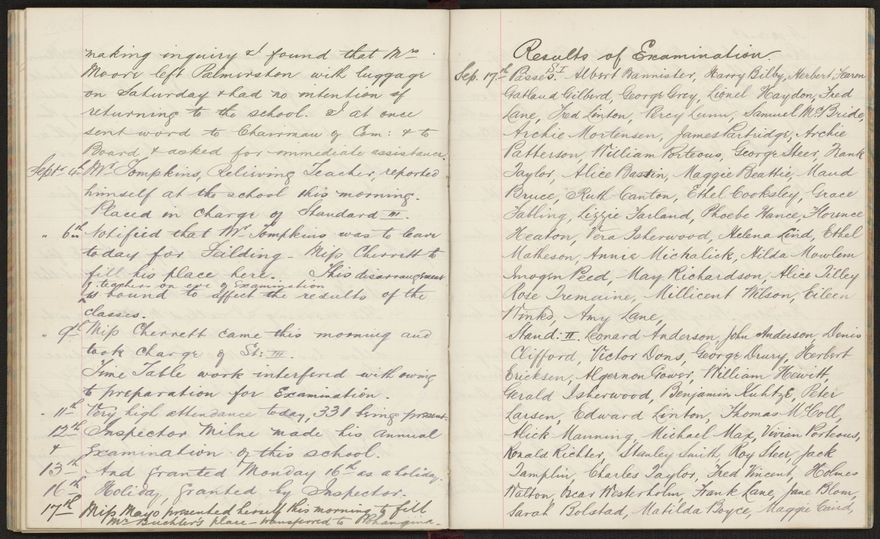 making inquiry & I found that Mrs
Moore left Palmerston with luggage
on Saturday & had no intention of
returning to the school. I at once
sent word to Chairman of Com: & to
Board & asked for immediate assistance.
Sept. 4th Mr Tompkins, Relieving Teacher, reported
himself at the school this morning.
Placed in charge of Standard III.
" 6th Notified that Mr Tompkins was to leave
today for Feilding. Miss Cherrett to
fill his place here. This disarrangement
of teachers on eve of Examination
is bound to affect the results of the
classes.
" 9th Miss Cherrett came this morning and
took charge of St: III.
Time Table work interfered with owing
to preparation for Examination.
" 11th Very high attendance today, 331 being present.
12th Inspector Milne made his annual
& Examination of this school.
13th And granted Monday 16th as a holiday.
16th Holiday, granted by Inspector.
17th Miss Mayo presented herself this morning to fill
Mr Buchler's place - transferred to Pohangina.
Results of Examination
Sep. 17th Passes. S.I Albert Bannister, Harry Bilby, Herbert
Gatland Gilberd, George Grey, Lionel Haydon, Fred
Lane, Fred Linton, Percy Lunn, Samuel McBride,
Archie Mortensen, James Partridge, Archie
Patterson, William Porteous, George Steer, Frank
Taylor, Alice Bassin, Maggie Beattie, Maud
Bruce, Ruth Canton, Ethel Cooksley, Grace
Fabling, Lizzie Farland, Phoebe Hance, Florence
Heaton, Vera Isherwood, Helena Lind, Ethel
Matheson, Annie Michalick, Hilda Mowlem
Imogen Peed, May Richardson, Alice Tilley
Rose Tremaine, Millicent Wilson, Eileen
Winks, Amy Lane,
Stand: II. Leonard Anderson, John Anderson Denis
Clifford, Victor Dons, George Drury, Herbert
Ericksen, Algernon Gower, William Hewitt,
Gerald Isherwood, Benjamin Kuhtze, Peter
Larsen, Edward Linton, Thomas McColl,
Alick Manning, Michael Max, Vivian Porteous,
Ronald Richter, Stanley Smith, Roy Steer, Jack
Tamplin, Charles Taylor, Fred Vincent, Holmes
Watton, Oscar Westerholm, Frank Lane, Jane Blom,
Sarah Bolstad, Matilda Boyce, Maggie Caird,